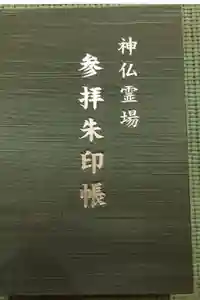 神仏霊場
参拝朱印帳